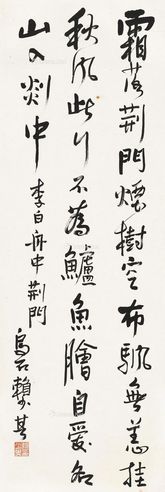 霜落荆門煙樹空布颿無恙挂
秋風此行不為鱸魚膾自愛名
山入剡中
李白舟中荆門
烏石賴少其